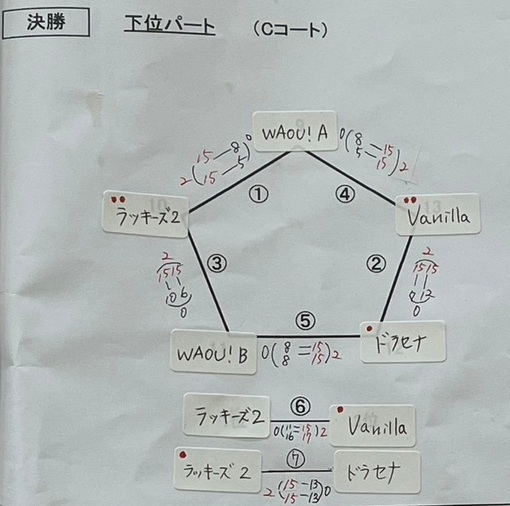 決勝 下位パート (Cコート)
WAOU! A
2(15-8 15-5)0
0(8-15 5-15)2
① ④
ラッキーズ2
Vanilla
③ ②
2
15 15
10 6
0
2
15 15
12
0
⑤
WAOU! B
0(8-15 8-15)2
ドラセナ
⑥
ラッキーズ2
0(11-15 16-17)2
Vanilla
⑦
ラッキーズ2
2(15-13 15-13)0
ドラセナ